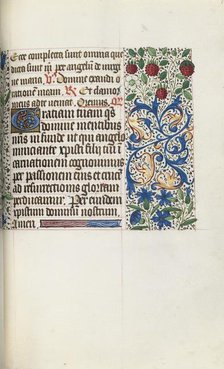 Et e completa sunt omnia que
dicta sunt in per angelū de virgi
ne maria. V. Domine exaudi o
rationē meam. R. Et clamor
meus ad te veniat. Oremus.
Gratiam tuam qs
domine mentibus
nr̄is infunde ut angelo
nunciante xp̄isti filij tui i
carnationem cognouimus
per passionem eius et crucē
ad resurrectionis gloriam
perducamur. Per eundem
xp̄istum dominū nostrum.
Amen.